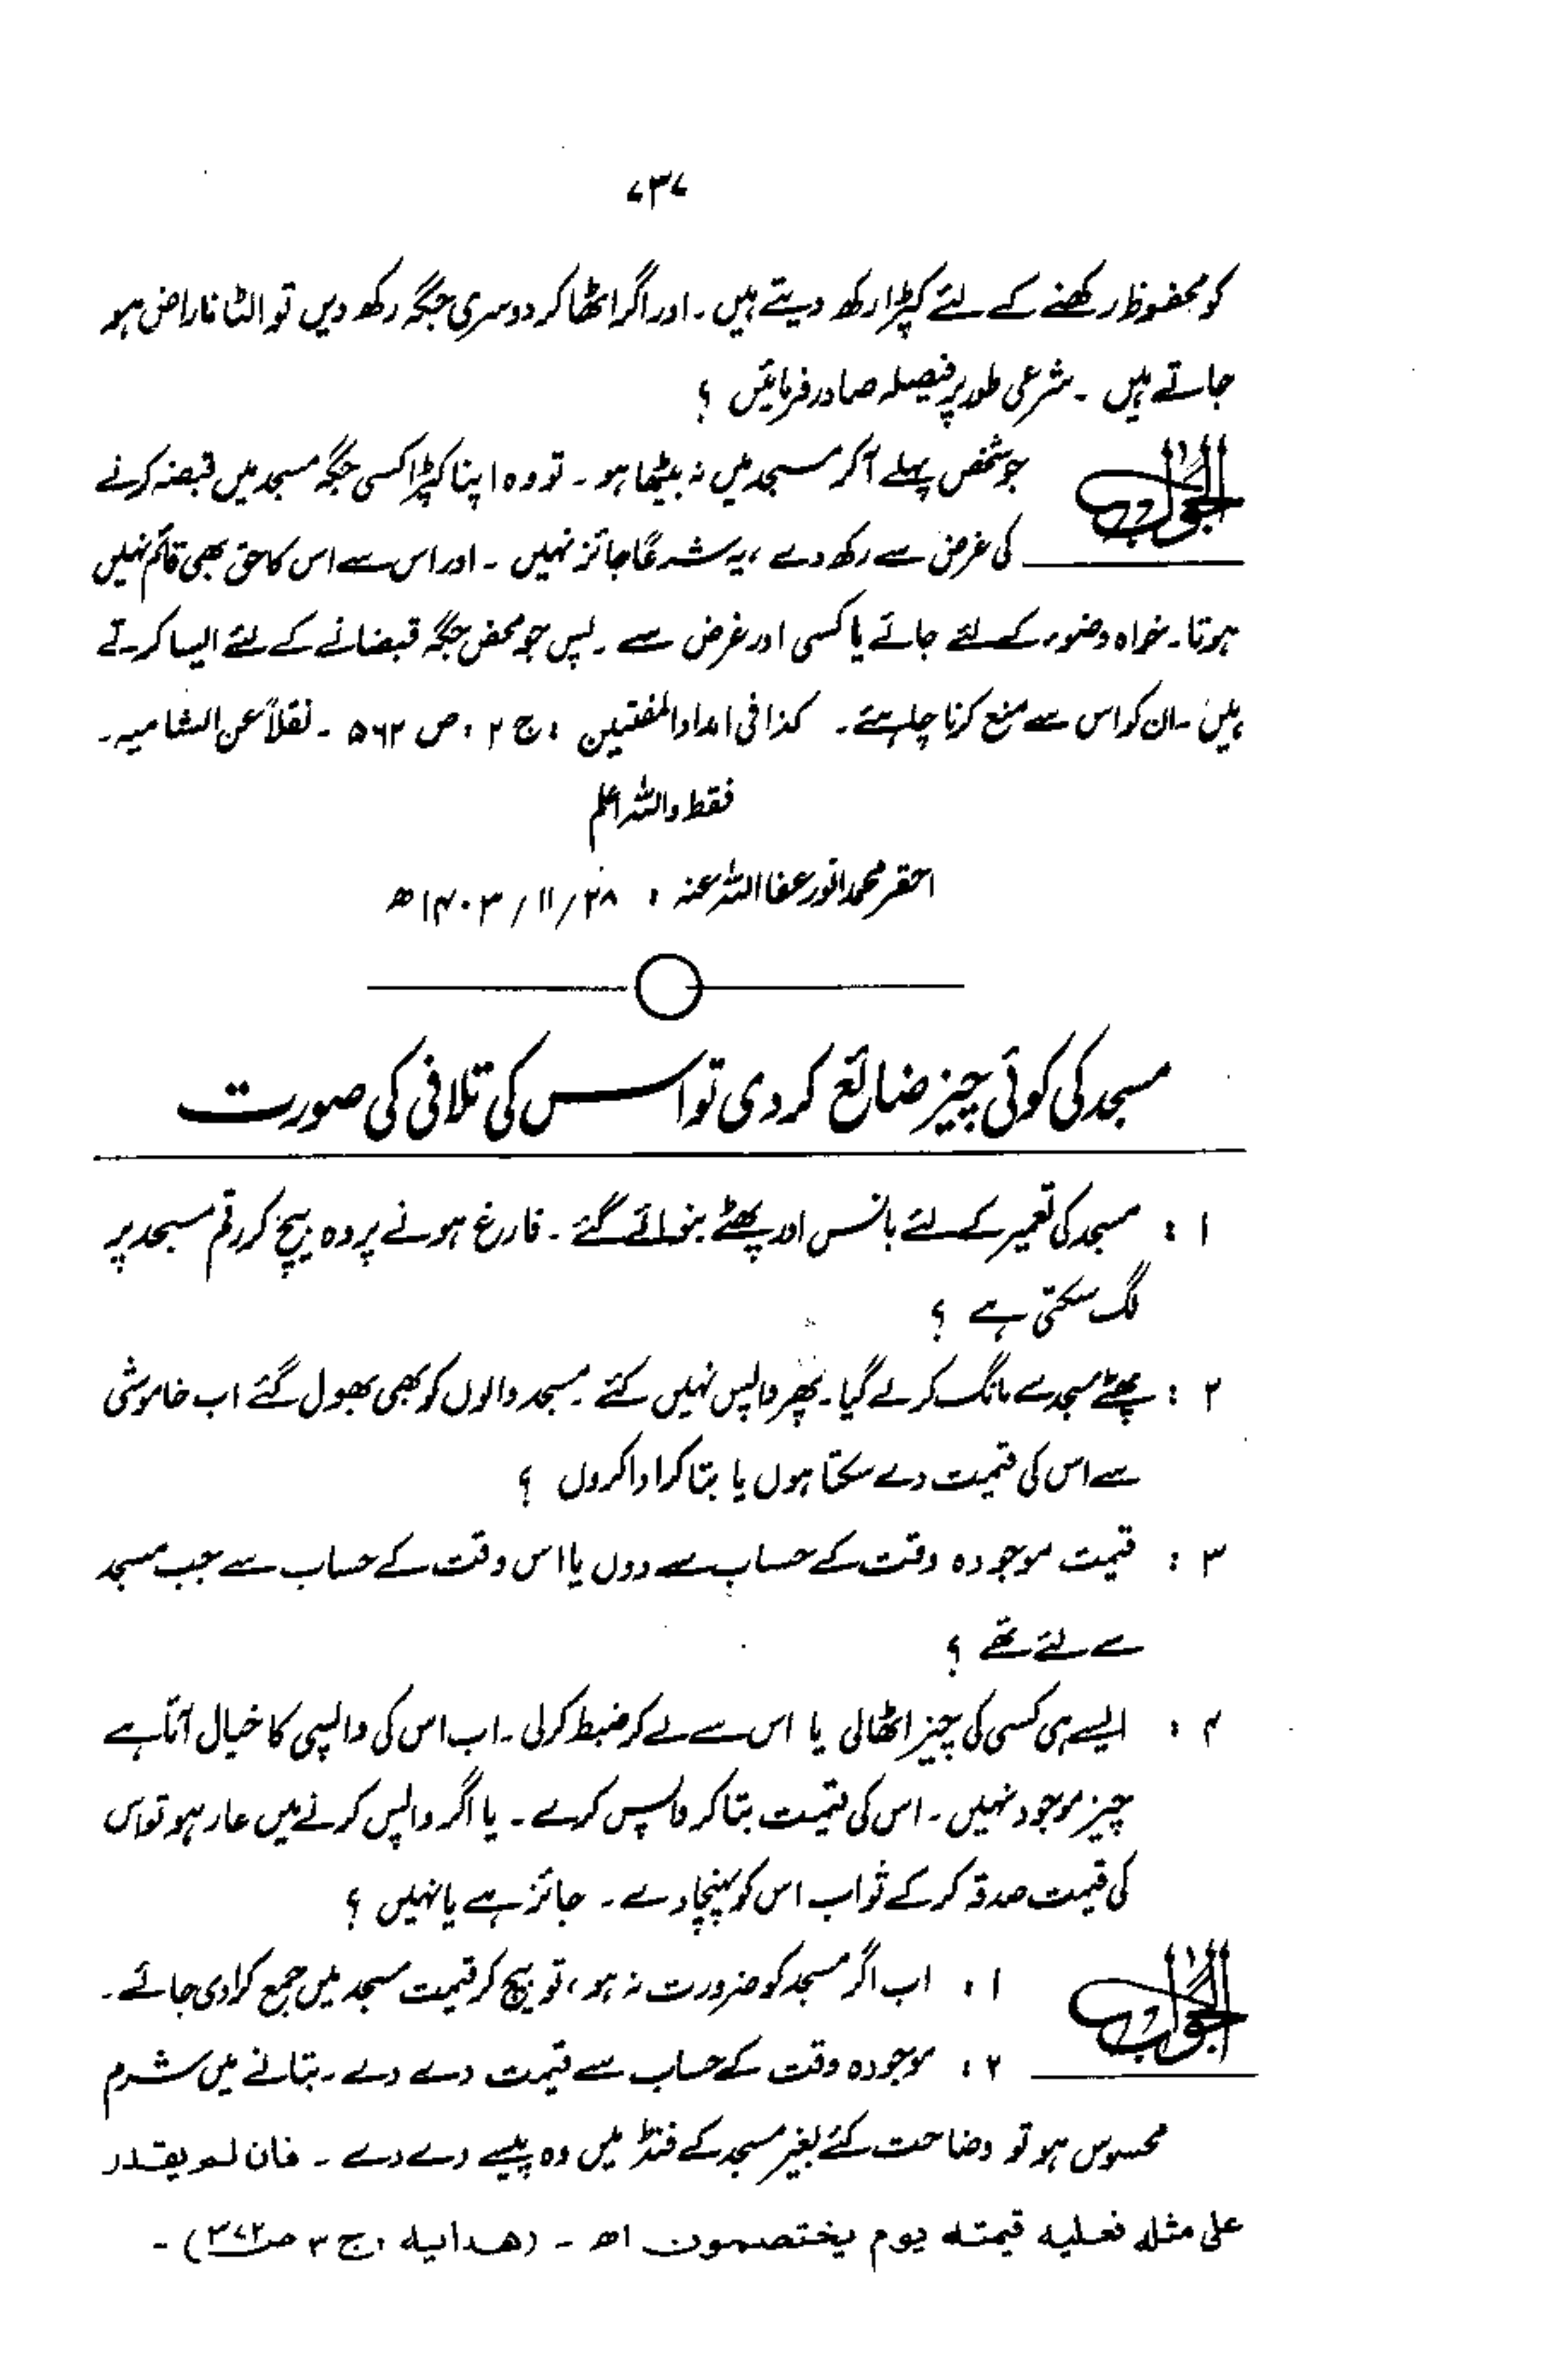 ۷۳۷
کو محفوظ رکھنے کے لئے کپڑا رکھ دیتے ہیں ۔ اور اگر اٹھا کر دوسری جگہ رکھ دیں تو الٹا ناراض ہو
جاتے ہیں ۔ شرعی طور پر فیصلہ صادر فرمائیں ؟
الجواب جو شخص پہلے آکر مسجد میں نہ بیٹھا ہو ۔ تو وہ اپنا کپڑا کسی جگہ مسجد میں قبضہ کرنے
کی غرض سے رکھ دے ، یہ شرعًا جائز نہیں ۔ اور اس سے اس کا حق بھی قائم نہیں
ہوتا ۔ خواہ وضوء کے لئے جائے یا کسی اور غرض سے ۔ پس جو محض جگہ قبضانے کے لئے ایسا کرتے
ہیں ۔ ان کو اس سے منع کرنا چاہئے ۔ کذا فی امداد المفتیین ، ج ۲ ، ص ۵۶۲ ۔ نقلاً عن الشامیہ ۔
فقط واللہ اعلم
احقر محمد انور عفا اللہ عنہ ، ۲۸ / ۱۱ / ۱۴۰۳ھ
مسجد کی کوئی چیز ضائع کر دی تو اس کی تلافی کی صورت
۱ : مسجد کی تعمیر کے لئے بانس اور پھٹے بنوائے گئے ۔ فارغ ہونے پر وہ بیچ کر رقم مسجد پر
لگ سکتی ہے ؟
۲ : پھٹے مسجد سے مانگ کر لے گیا ۔ پھر واپس نہیں کئے ۔ مسجد والوں کو بھی بھول گئے اب خاموشی
سے اس کی قیمت دے سکتا ہوں یا بتا کر ادا کروں ؟
۳ : قیمت موجودہ وقت کے حساب سے دوں یا اس وقت کے حساب سے جب مسجد
سے لئے تھے ؟
۴ : ایسے ہی کسی کی چیز اٹھالی یا اس سے لے کر ضبط کرلی ۔ اب اس کی واپسی کا خیال آتا ہے
چیز موجود نہیں ۔ اس کی قیمت بتا کر واپس کرے ۔ یا اگر واپس کرنے میں عار ہو تو اس
کی قیمت صدقہ کر کے ثواب اس کو پہنچا دے ۔ جائز ہے یا نہیں ؟
الجواب ۱ : اب اگر مسجد کو ضرورت نہ ہو ، تو بیچ کر قیمت مسجد میں جمع کرا دی جائے ۔
۲ : موجودہ وقت کے حساب سے قیمت دے دے ۔ بتانے میں شرم
محسوس ہو تو وضاحت کئے بغیر مسجد کے فنڈ میں وہ پیسے دے دے ۔ فان لم یقدر
علی مثلہ فعلیہ قیمتہ یوم یختصمون اھ ۔ (ھدایہ ، ج ۳ ص ۳۷۲) ۔